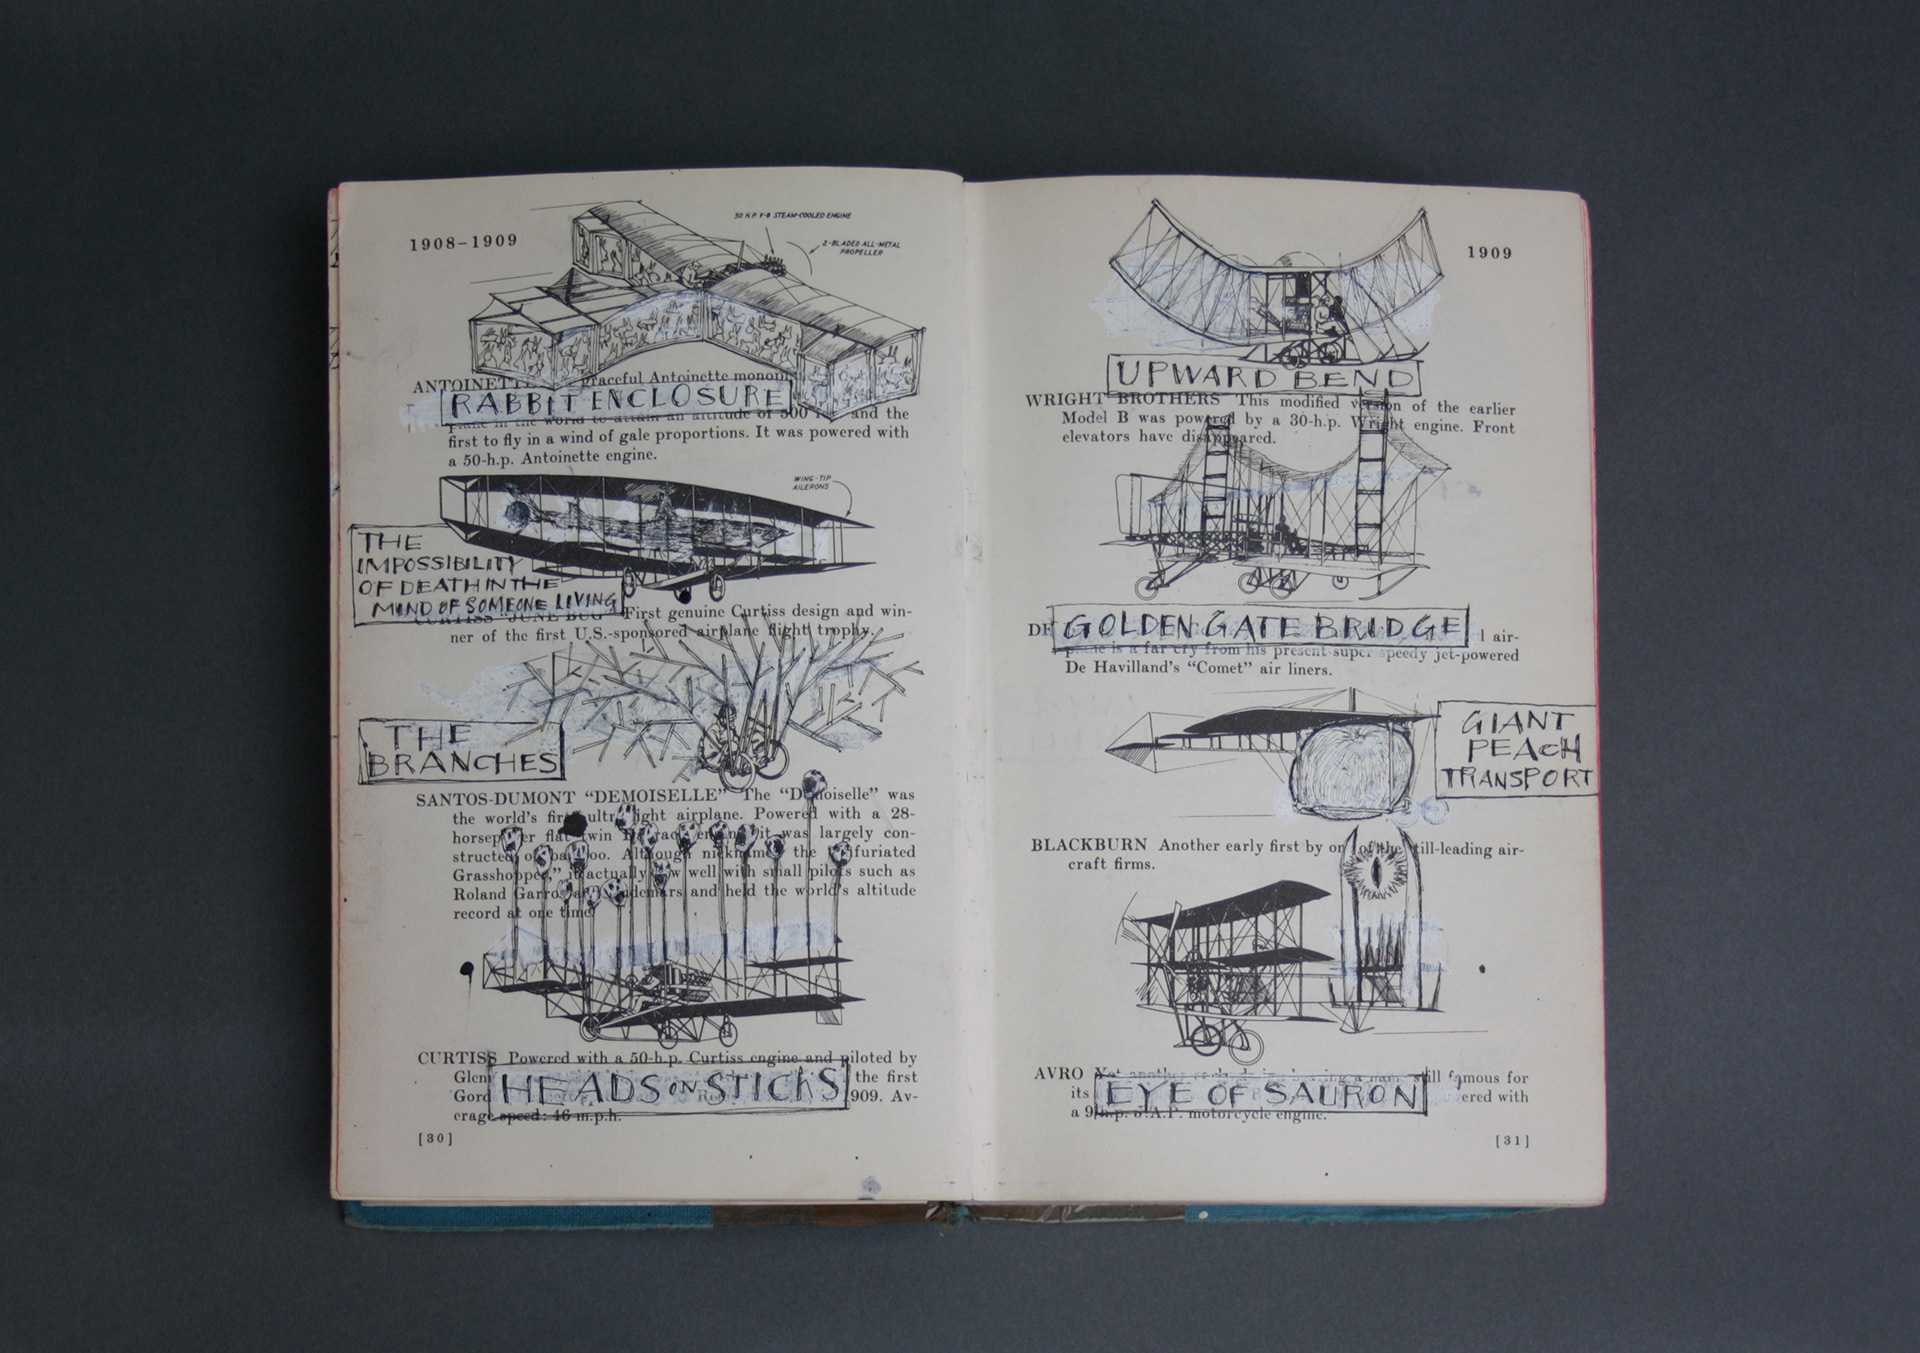 1908–1909
50 H.P. V-8 STEAM-COOLED ENGINE
2-BLADED ALL-METAL
PROPELLER
ANTOINETTE graceful Antoinette monopl
RABBIT ENCLOSURE
plane in the world to attain an altitude of 500 and the
first to fly in a wind of gale proportions. It was powered with
a 50-h.p. Antoinette engine.
WING-TIP
AILERONS
THE
IMPOSSIBILITY
OF DEATH IN THE
MIND OF SOMEONE LIVING
CURTISS "JUNE BUG" First genuine Curtiss design and win-
ner of the first U.S.-sponsored airplane flight trophy.
THE
BRANCHES
SANTOS-DUMONT "DEMOISELLE" The "Demoiselle" was
the world's first ultra light airplane. Powered with a 28-
horsepower flat twin engine, it was largely con-
structed of bamboo. Although nicknamed the "Infuriated
Grasshopper," it actually flew well with small pilots such as
Roland Garros and Audemars and held the world's altitude
record at one time.
CURTISS Powered with a 50-h.p. Curtiss engine and piloted by
Glen the first
HEADS ON STICKS
Gord 1909. Av-
erage speed: 46 m.p.h.
[30]
1909
UPWARD BEND
WRIGHT BROTHERS This modified version of the earlier
Model B was powered by a 30-h.p. Wright engine. Front
elevators have disappeared.
DE GOLDEN GATE BRIDGE l air-
plane is a far cry from his present super speedy jet-powered
De Havilland's "Comet" air liners.
GIANT
PEACH
TRANSPORT
BLACKBURN Another early first by one of the still-leading air-
craft firms.
AVRO Yet another early design bearing a name still famous for
its EYE OF SAURON ered with
a 9-h.p. J.A.P. motorcycle engine.
[31]